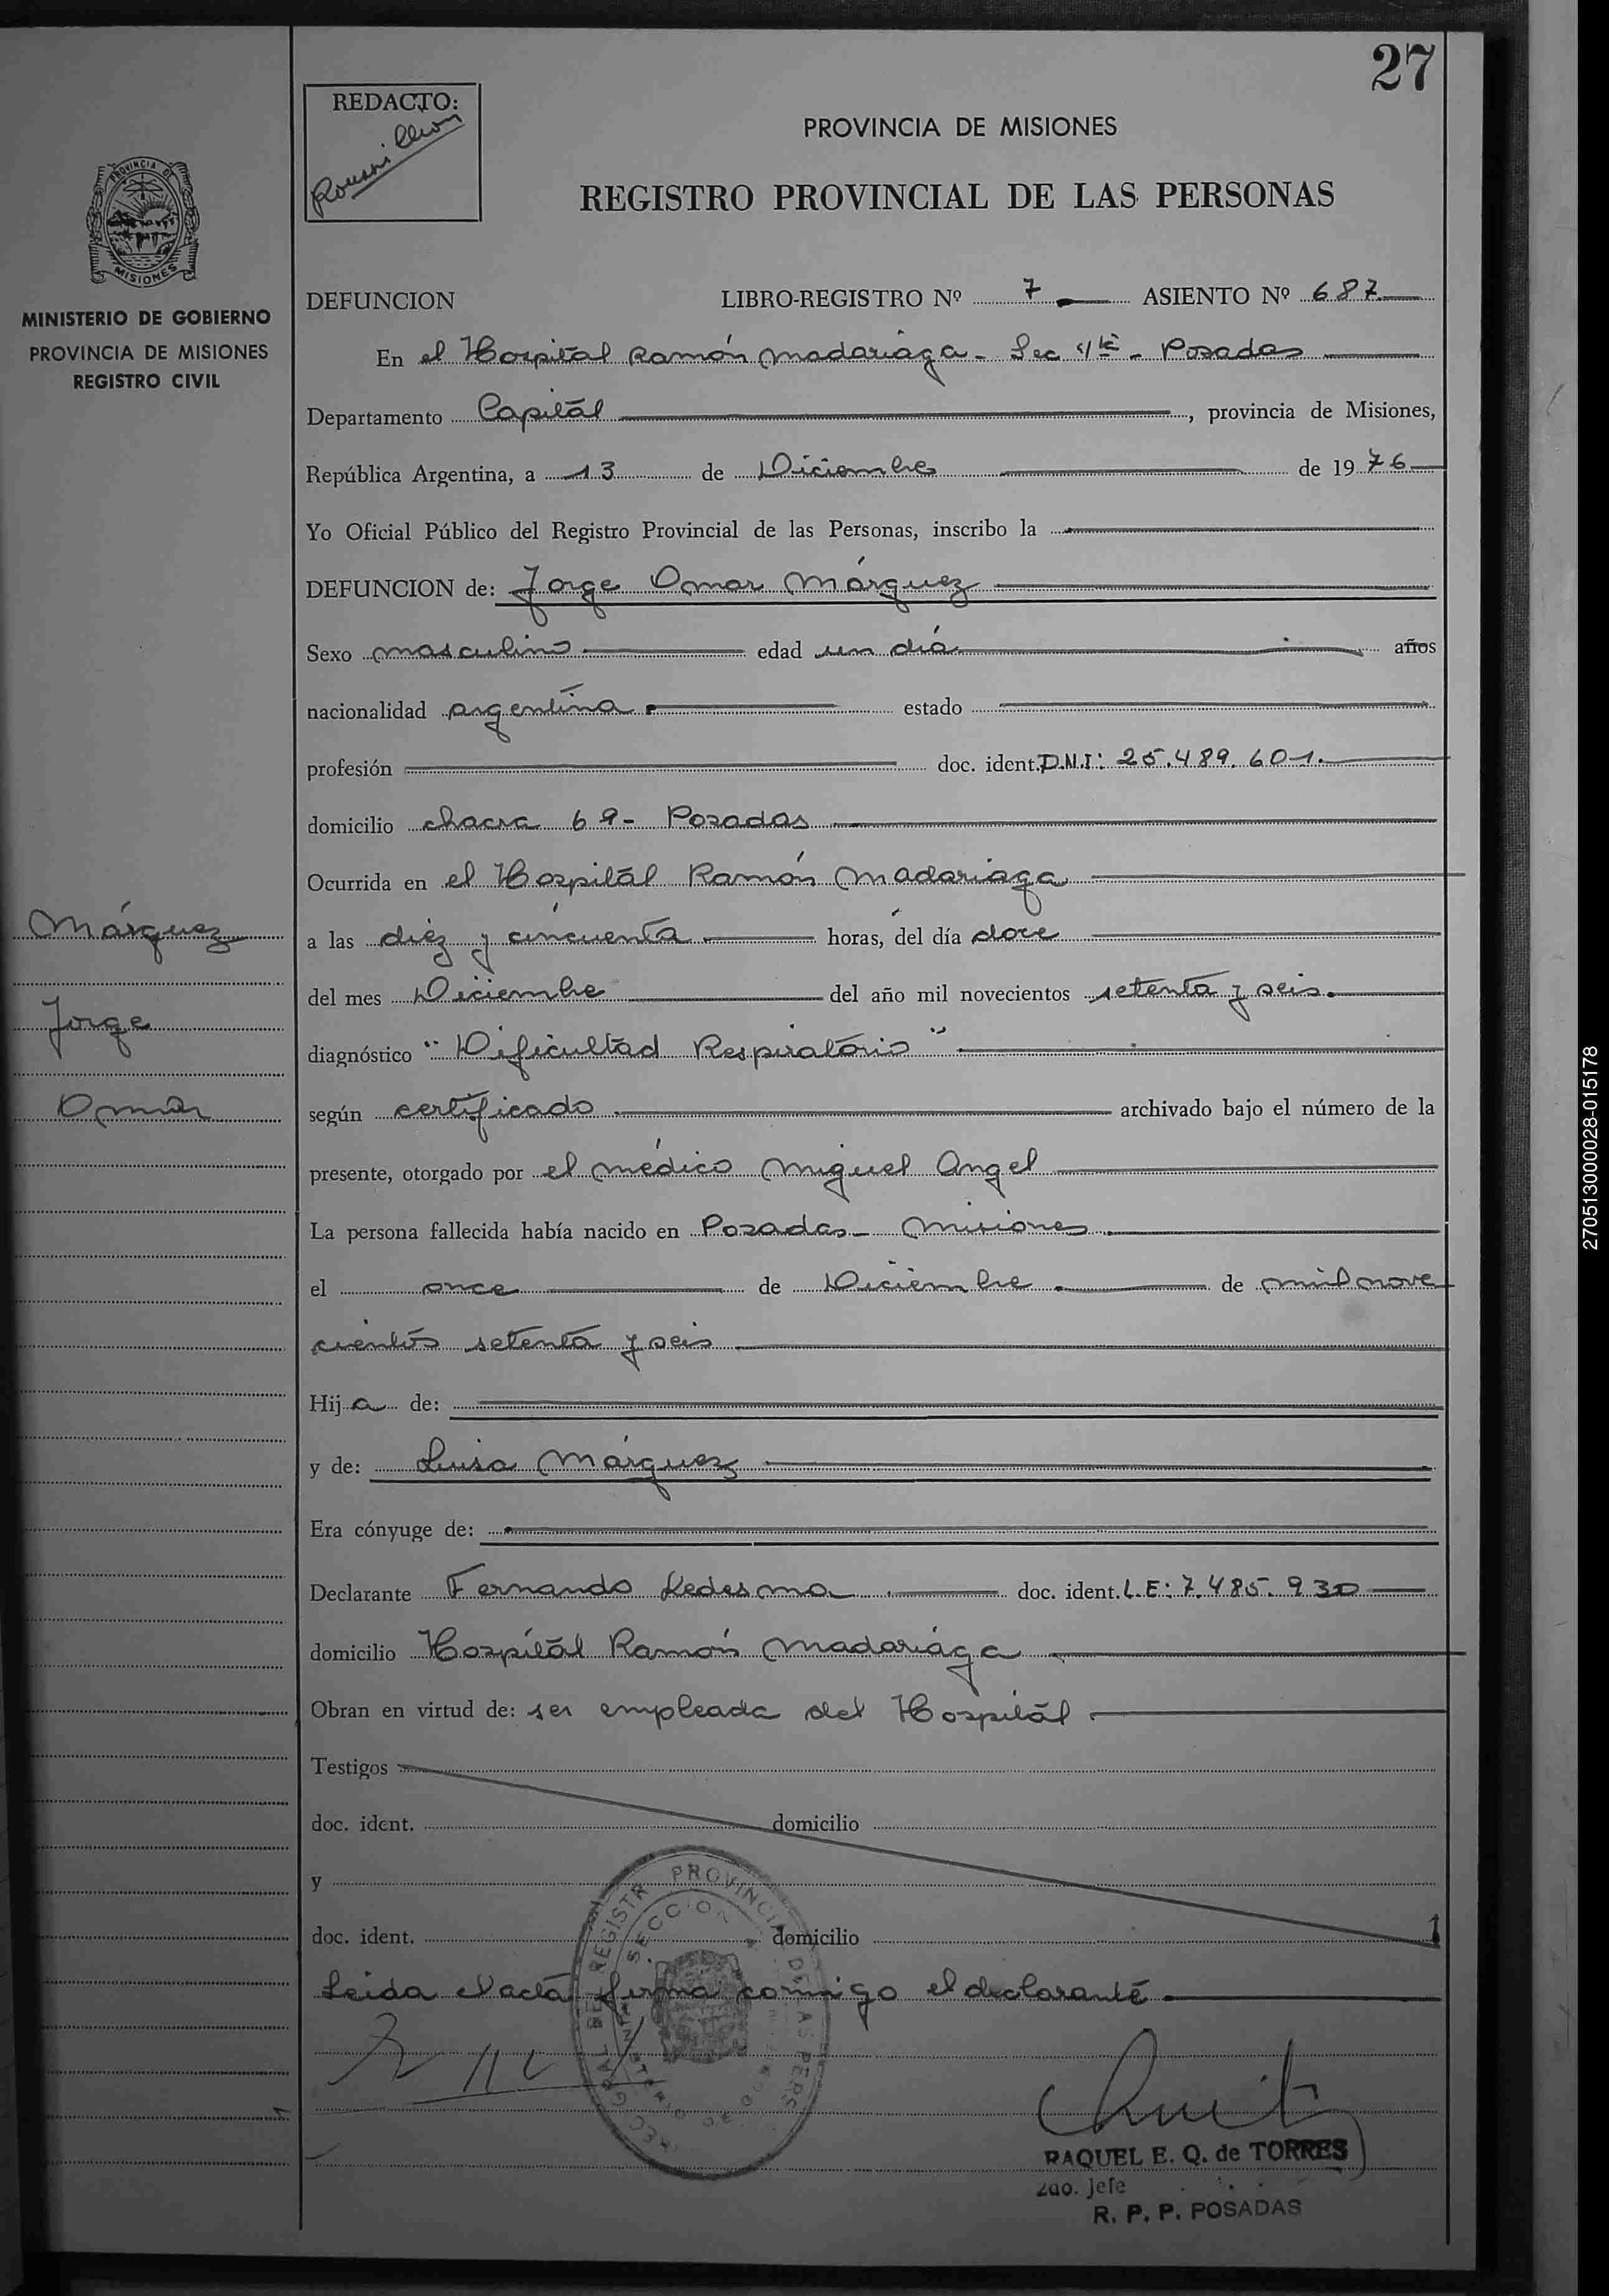 27
REDACTO:
PROVINCIA DE MISIONES
REGISTRO PROVINCIAL DE LAS PERSONAS
PROVINCIA DE
MISIONES
MINISTERIO DE GOBIERNO
PROVINCIA DE MISIONES
REGISTRO CIVIL
DEFUNCION LIBRO-REGISTRO Nº 7 ASIENTO Nº 687
En el Hospital Ramón Madariaga - Sec 1ra - Posadas
Departamento Capital, provincia de Misiones,
República Argentina, a 13 de Diciembre de 1976
Yo Oficial Público del Registro Provincial de las Personas, inscribo la
DEFUNCION de: Jorge Omar Márquez
Sexo masculino edad un día años
nacionalidad argentina estado
profesión doc. ident. D.N.I: 25.489.601.
domicilio chacra 69 - Posadas
Ocurrida en el Hospital Ramón Madariaga
a las diez y cincuenta horas, del día doce
del mes Diciembre del año mil novecientos setenta y seis.
diagnóstico "Dificultad Respiratorio"
según certificado archivado bajo el número de la
presente, otorgado por el médico Miguel Angel
La persona fallecida había nacido en Posadas - Misiones
el once de Diciembre de mil nove
cientos setenta y seis
Hij a de:
y de: Luisa Márquez
Era cónyuge de:
Declarante Fernando Ledesma doc. ident. L.E: 7.485.930
domicilio Hospital Ramón Madariaga
Obran en virtud de: ser empleada del Hospital
Testigos
doc. ident. domicilio
y
doc. ident. domicilio
Leida el acta firma conmigo el declarante.
RAQUEL E. Q. de TORRES
2do. Jefe
R. P. P. POSADAS
Márquez
Jorge
Omar
270513000028-015178